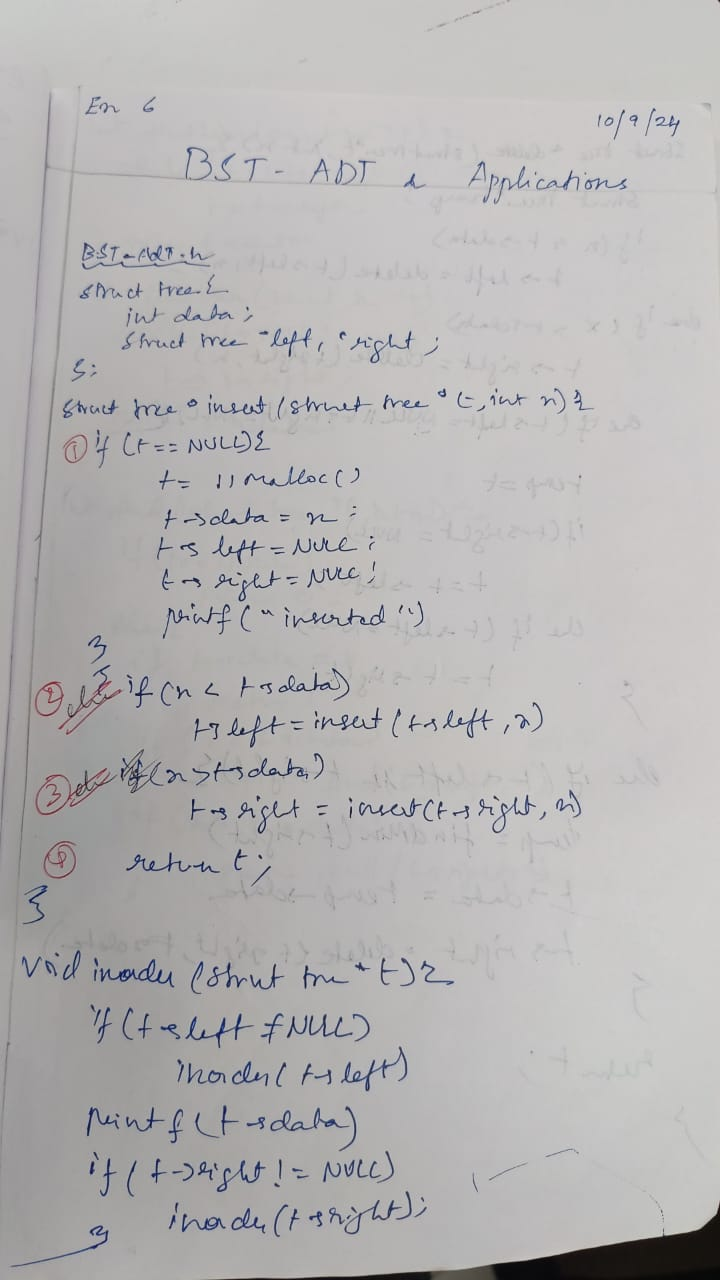 Ex 6
10/9/24
BST - ADT & Applications
BST-ADT.h
struct tree {
int data;
struct tree *left, *right;
};
struct tree * insert (struct tree * t, int x) {
① if (t == NULL) {
t = // malloc ()
t → data = x ;
t → left = NULL ;
t → right = NULL ;
printf (" inserted ")
}
② else if (x < t → data)
t → left = insert (t → left , x)
③ else if (x > t → data)
t → right = insert (t → right, x)
④ return t ;
}
void inorder (struct tree * t) {
if (t → left ≠ NULL)
inorder (t → left)
printf (t → data)
if (t → right != NULL)
inorder (t → right);
}